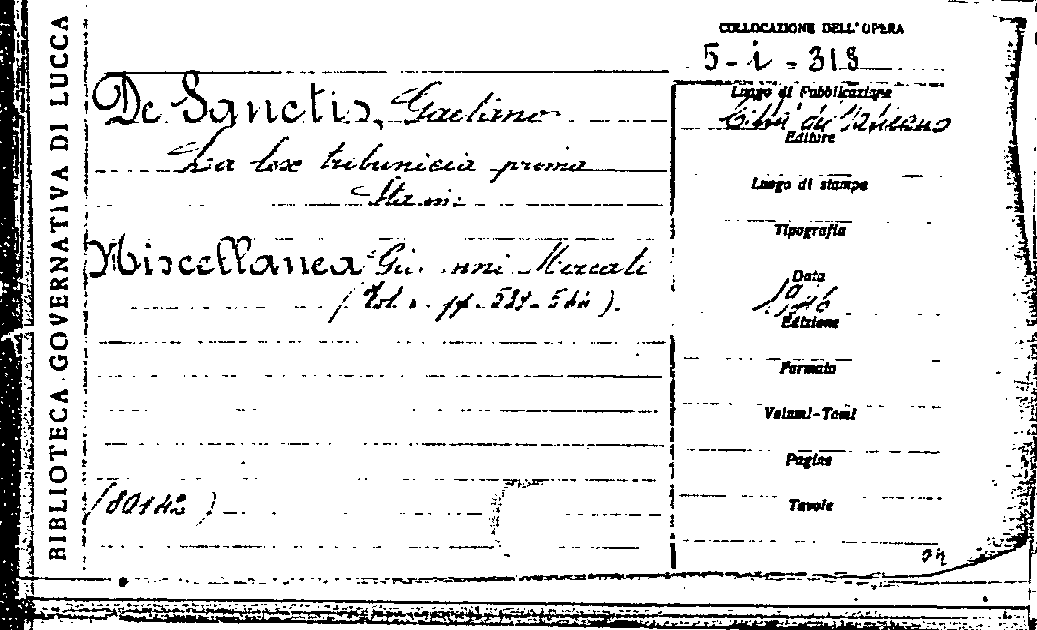 BIBLIOTECA GOVERNATIVA DI LUCCA
COLLOCAZIONE DELL'OPERA
5-i-318
De Sanctis, Gaetano
La lex tribunicia prima
Miscellanea Gi. nni Mercati
(Vol. pp. 537-544).
(80142)
Luogo di Pubblicazione
Città del Vaticano
Editore
Luogo di stampa
Tipografia
Data
1946
Edizione
Formato
Volumi-Tomi
Pagine
Tavole